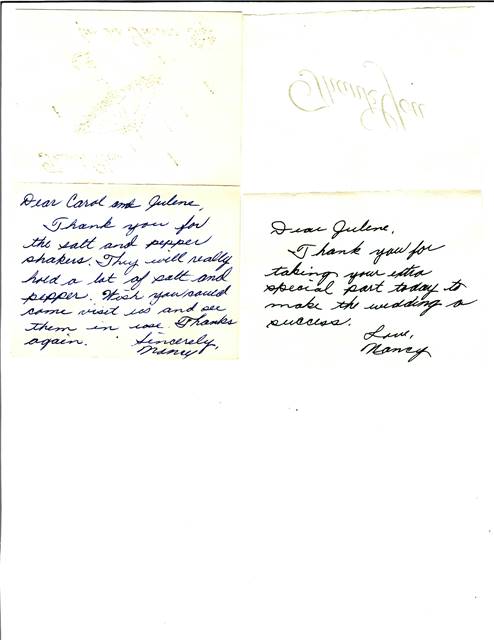 Thank You
Dear Carol and Julene,
Thank you for
the salt and pepper
shakers. They will really
hold a lot of salt and
pepper. Wish you could
come visit us and see
them in use. Thanks
again. Sincerely,
Nancy
Dear Julene,
Thank you for
taking your extra
special part today to
make the wedding a
success.
Love,
Nancy